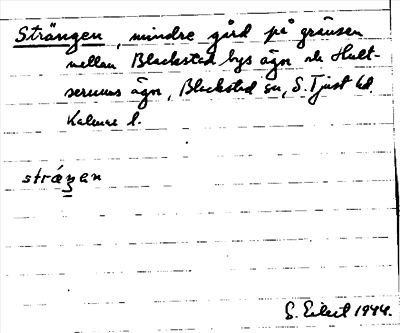 Strängen, mindre gård på gränsen
mellan Blackstad bys ägor och Hult-
serums ägor, Blackstad sn, S. Tjust hd.
Kalmar l.
stráŋen
1944.